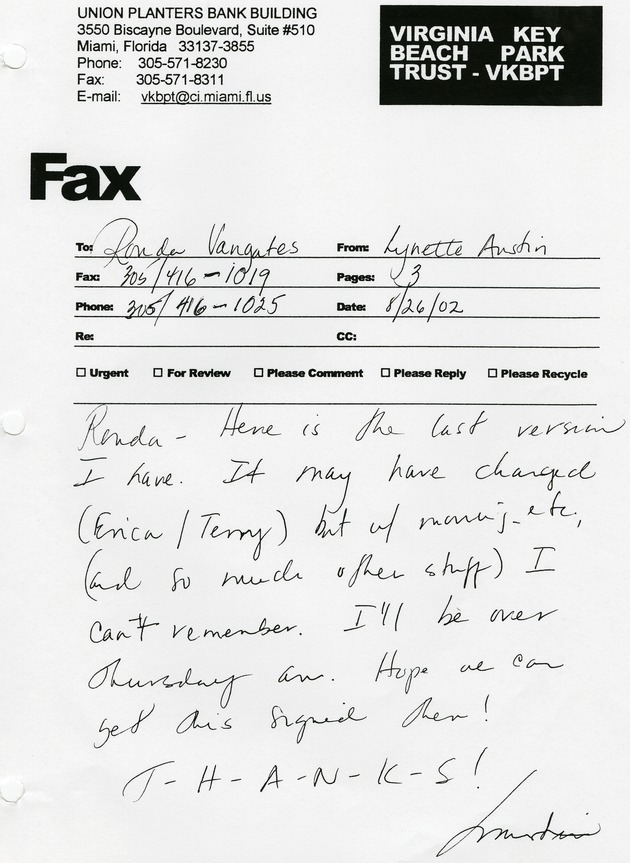 UNION PLANTERS BANK BUILDING
3550 Biscayne Boulevard, Suite #510
Miami, Florida 33137-3855
Phone: 305-571-8230
Fax: 305-571-8311
E-mail: vkbpt@ci.miami.fl.us
VIRGINIA KEY
BEACH PARK
TRUST - VKBPT
Fax
To: Ronda Vangates From: Lynette Austin
Fax: 305/416-1019 Pages: 3
Phone: 305/416-1025 Date: 8/26/02
Re: CC:
☐ Urgent ☐ For Review ☐ Please Comment ☐ Please Reply ☐ Please Recycle
Ronda - Here is the last version
I have. It may have changed
(Erica / Terry) but w/ moving, etc,
(and so much other stuff) I
can't remember. I'll be over
Thursday am. Hope we can
get this signed then!
T-H-A-N-K-S!